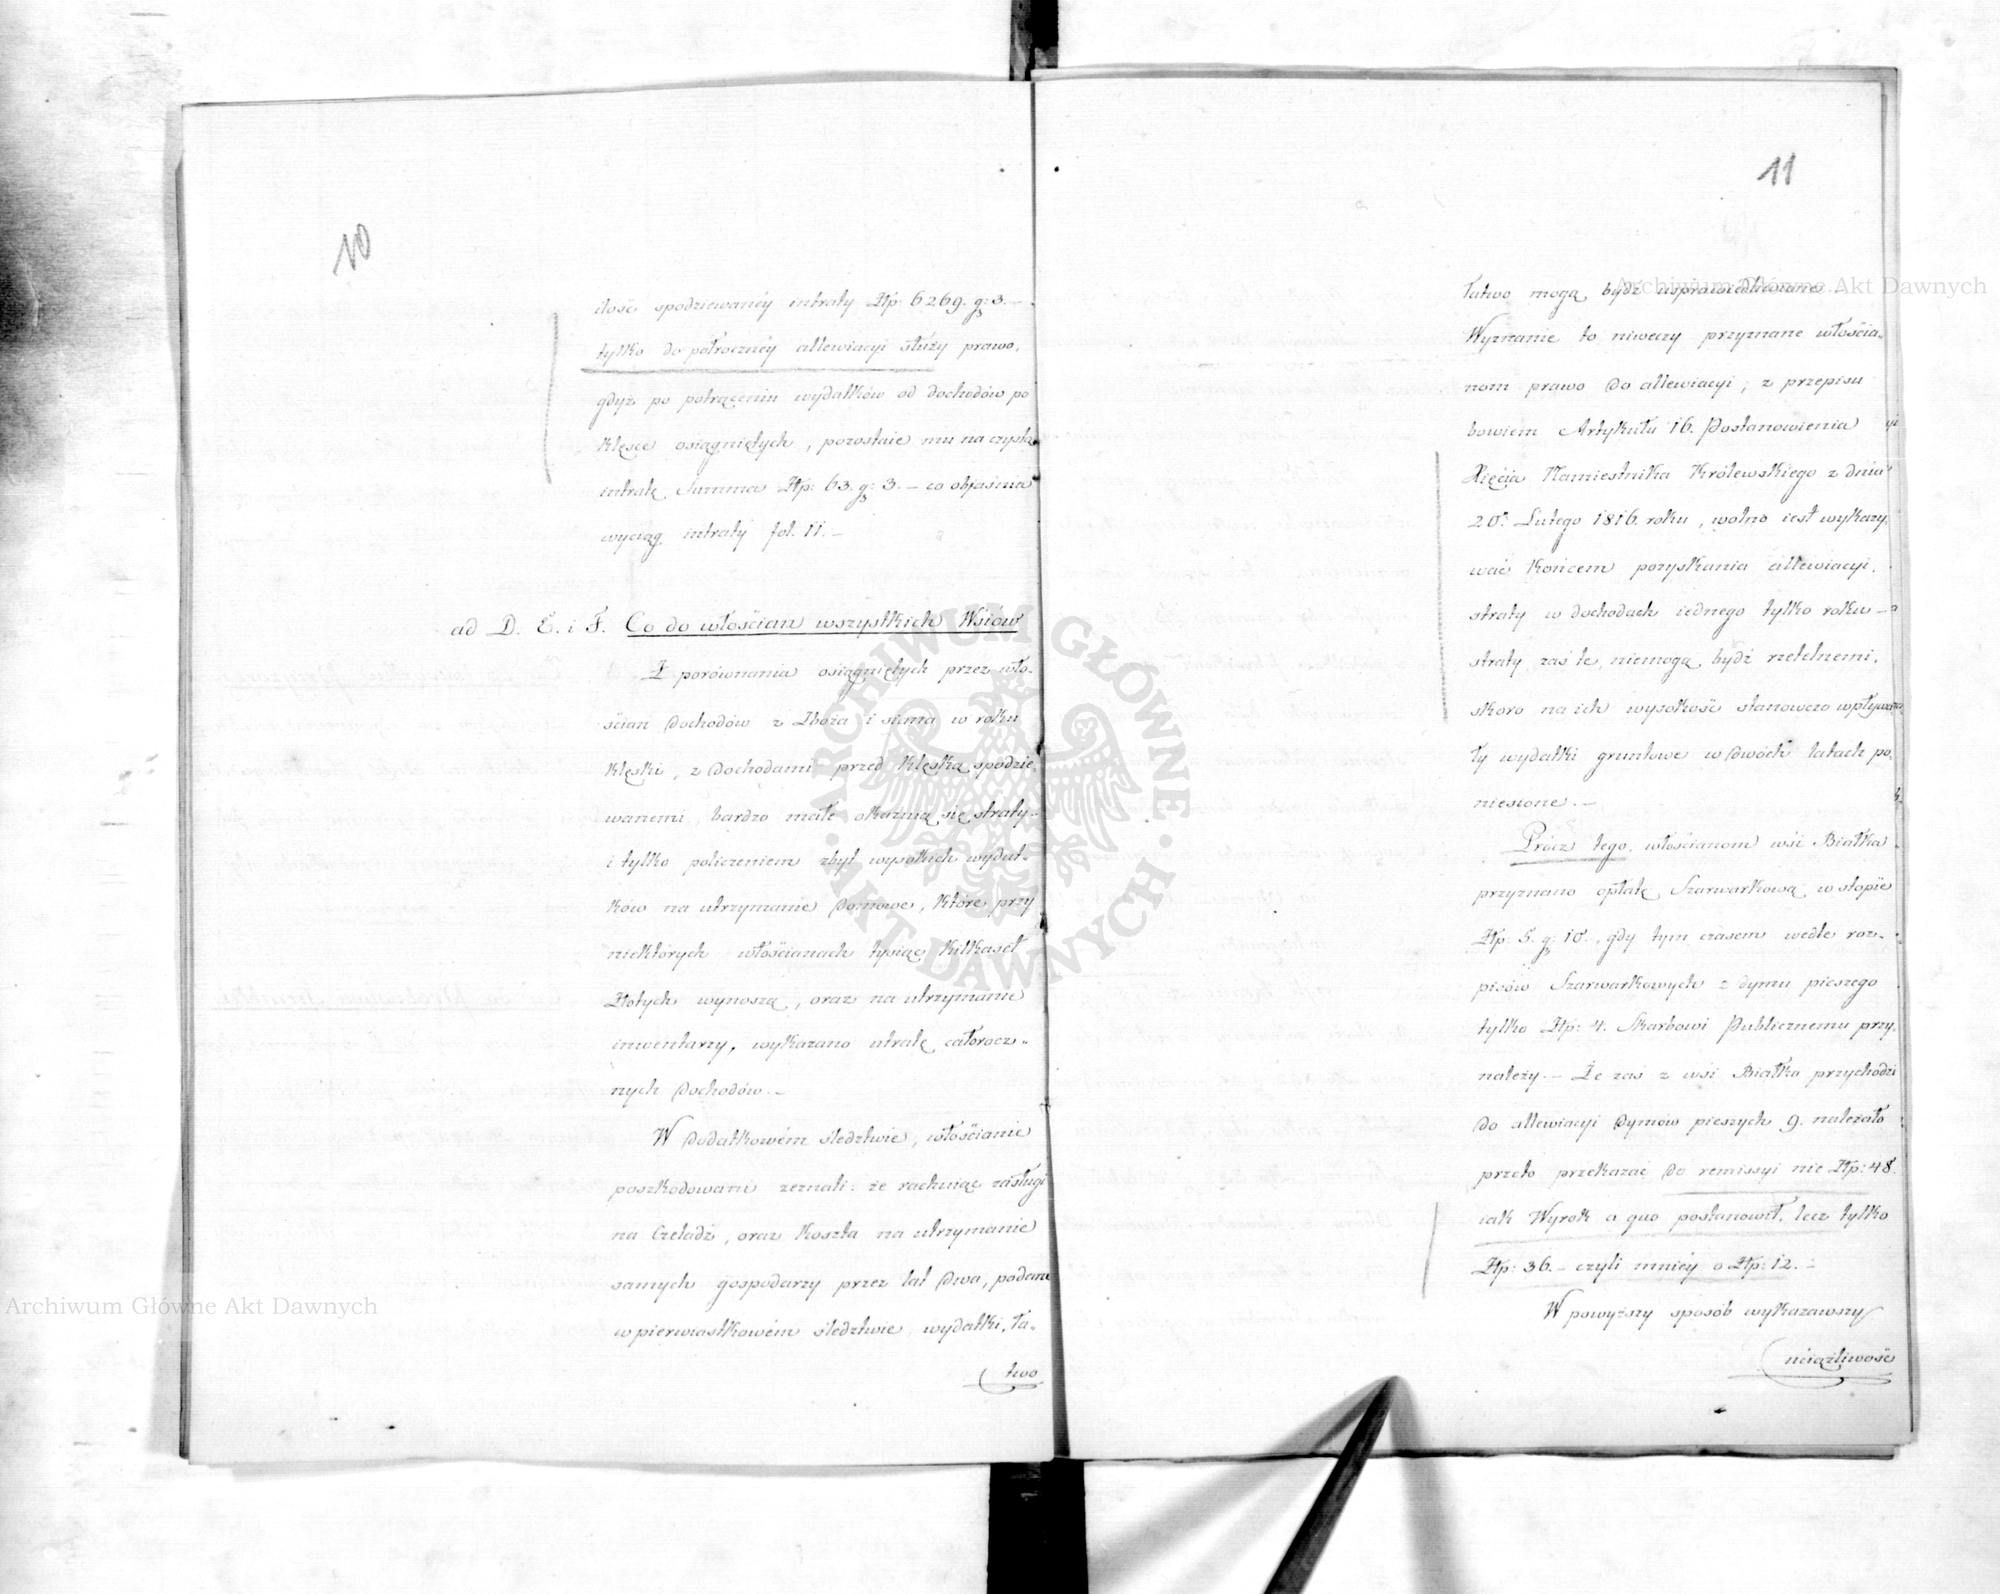 10
ilość spodziewanéy intraty Złp: 6269. g: 3. —
tylko do półrocznéy allewiacyi służy prawo,
gdyż po potrąceniu wydatków od dochodów po
klęsce osiągniętych, pozostaie mu na czystą
intratę Summa Złp: 63. g: 3. — co obiaśnia
wyciąg intraty fol. 11. —
ad D. E. i F. Co do włościan wszystkich Wsiow
Z porównania osiągniętych przez wło-
ścian dochodów z Zboża i siana w roku
klęski, z dochodami przed klęską spodzie-
wanemi, bardzo małe okazuią się straty,
i tylko policzeniem zbyt wysokich wydat-
ków na utrzymanie domowe, które przy
niektórych włościanach tysiąc kilkaset
Złotych wynoszą, oraz na utrzymanie
inwentarzy, wykazano utratę całorocz-
nych dochodów. —
W dodatkowém śledztwie, włościanie
poszkodowani zeznali: że rachuiąc zasługi
na Czeladź, oraz koszta na utrzymanie
samych gospodarzy przez lat dwa, podane
w pierwiastkowém śledztwie wydatki, ła-
two
11
łatwo mogą bydź usprawiedliwione.
Wyznanie to niweczy przyznane włościa-
nom prawo do allewiacyi, z przepisu
bowiem Artykułu 16. Postanowienia
Xięcia Namiestnika Królewskiego z dnia
20. Lutego 1816. roku, wolno iest wykazy-
wać końcem pozyskania allewiacyi,
straty w dochodach iednego tylko roku —
straty zaś te, niemogą bydź rzetelnemi,
skoro na ich wysokość stanowczo wpływa-
ły wydatki gruntowe w dwóch latach po-
niesione. —
Prócz tego, włościanom wsi Białka
przyznano opłatę Szarwarkową w stopie
Złp: 5. g: 10., gdy tym czasem wedle roz-
pisów Szarwarkowych z dymu pieszego
tylko Złp: 4. Skarbowi Publicznemu przy-
należy. — Że zaś z wsi Białka przychodzi
do allewiacyi dymów pieszych 9. należało
przeto przekazać do remissyi nie Złp: 48.
iak Wyrok a quo postanowił, lecz tylko
Złp: 36. — czyli mniéy o Złp: 12. —
W powyższy sposób wykazawszy
uciążliwość
Archiwum Główne Akt Dawnych
Archiwum Główne Akt Dawnych
ARCHIWUM GŁÓWNE · AKT DAWNYCH ·